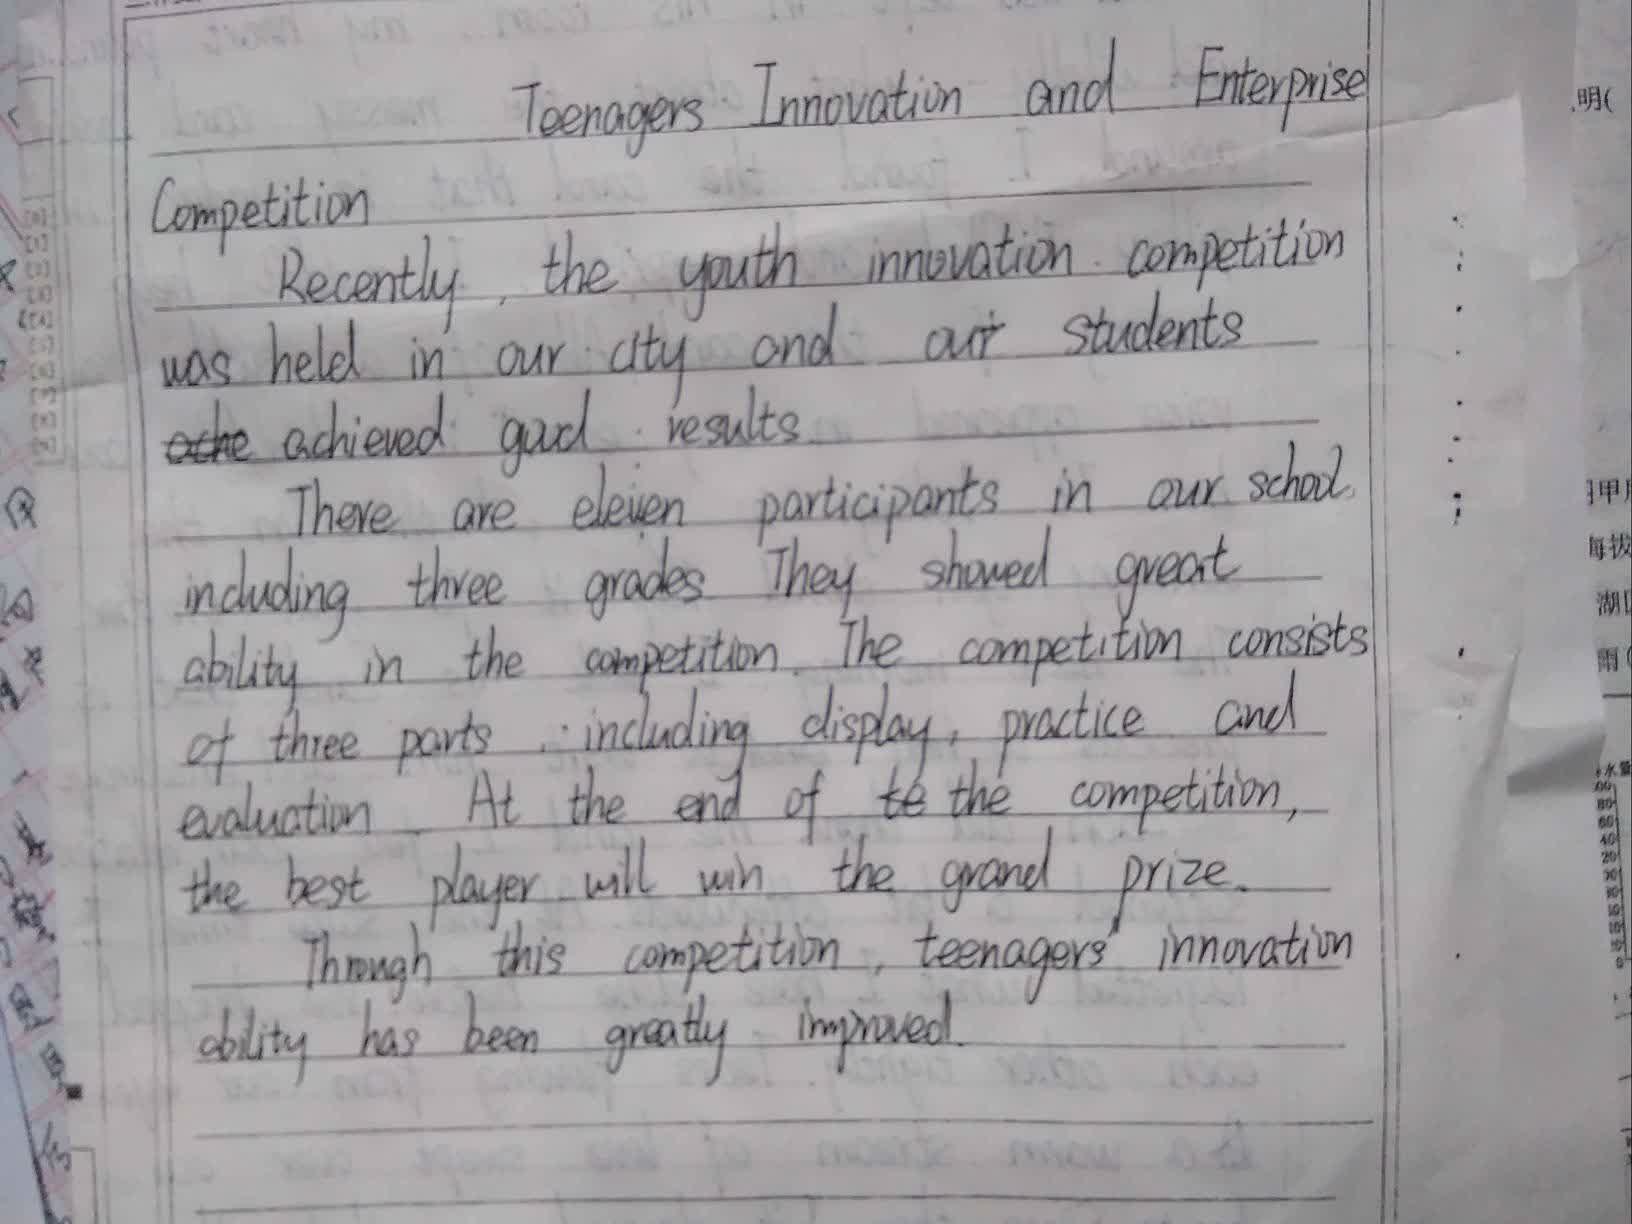 Teenagers Innovation and Enterprise
Competition
Recently, the youth innovation competition
was held in our city and our students
achieved good results
There are eleven participants in our school,
including three grades They showed great
ability in the competition. The competition consists
of three parts, including display, practice and
evaluation. At the end of the competition,
the best player will win the grand prize.
Through this competition, teenagers' innovation
ability has been greatly improved.
明(
甲
每拔
湖
雨(
水量